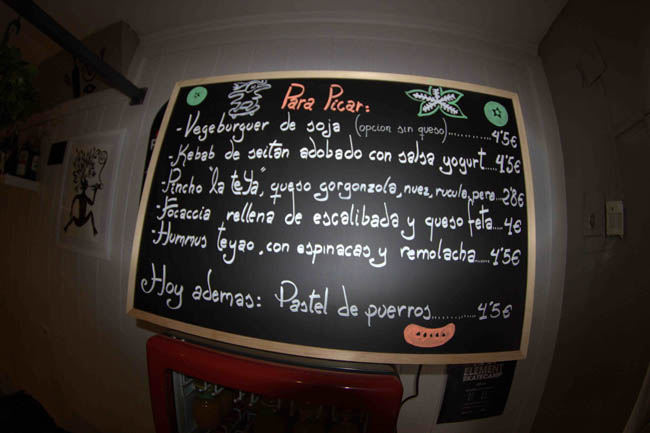 Para Picar:
-Vegeburguer de soja (opcion sin queso)........... 4'5€
-Kebab de seitan adobado con salsa yogurt.... 4'5€
-Pincho "la teYa", queso gorgonzola, nuez, rucula, pera... 2'8€
-Focaccia rellena de escalibada y queso feta.... 4€
-Hummus teyao, con espinacas y remolacha..... 4'5€
Hoy ademas: Pastel de puerros........... 4'5€
ELEMENT
SKATECAMP